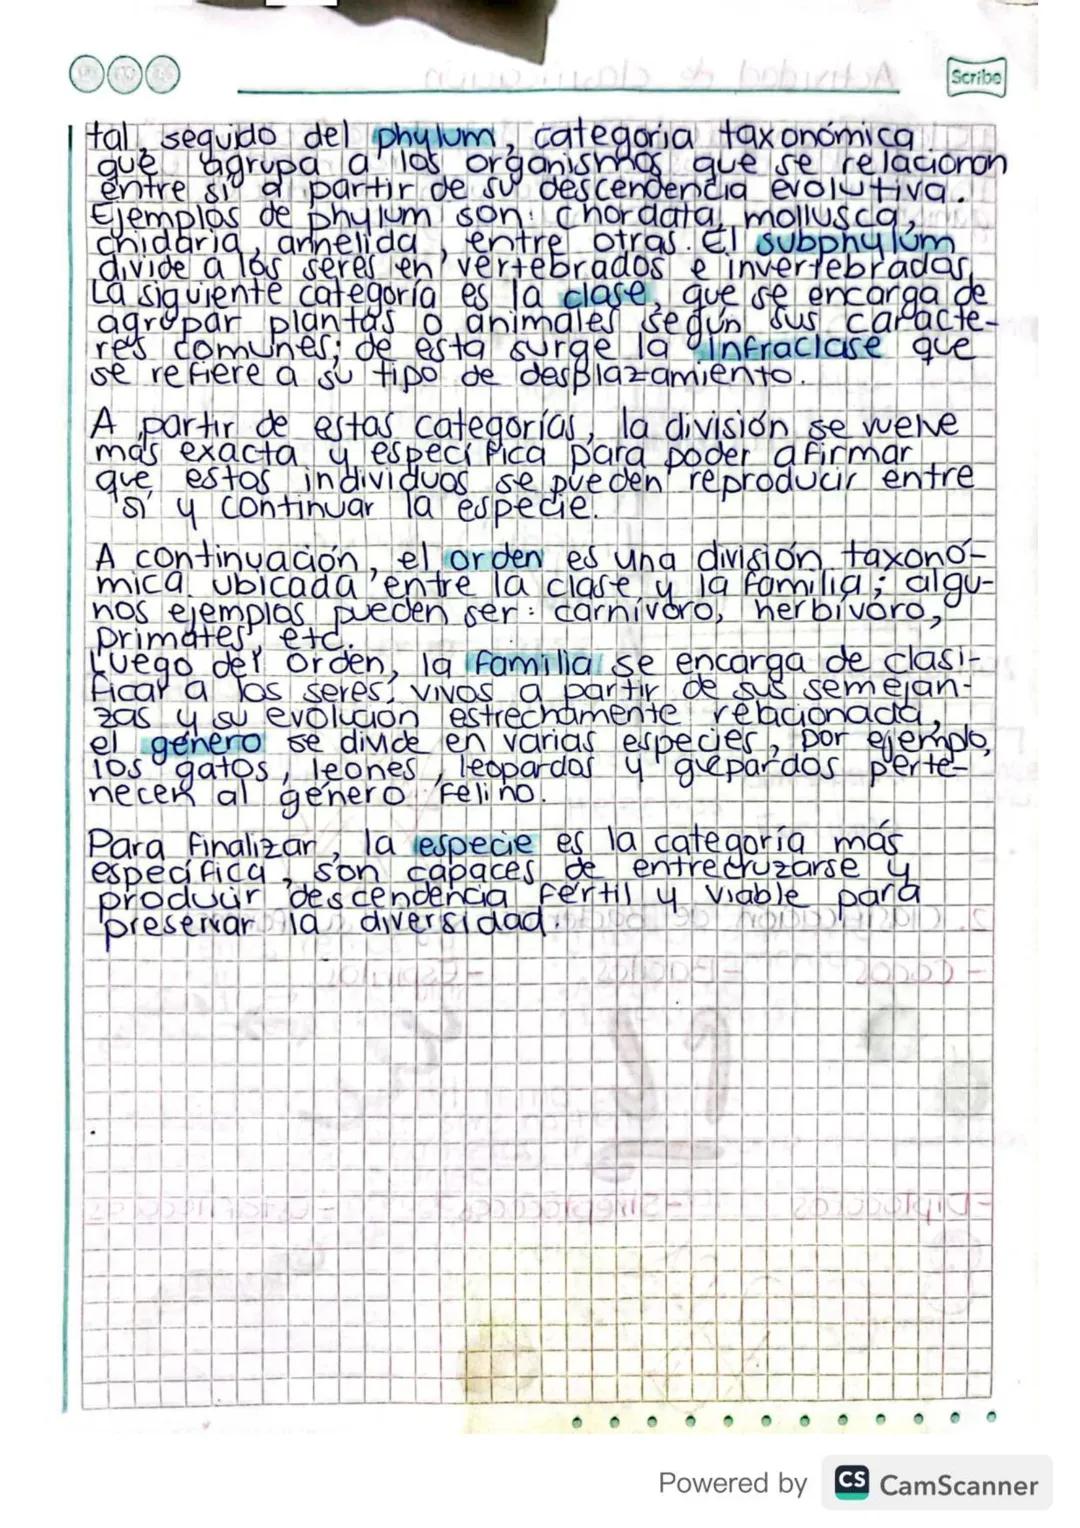 Scribe
tal, seguido del phylum, categoría taxonómica
que agrupa a los organismos que se relacionan
entre sí a partir de su descendencia evolutiva.
Ejemplos de phylum son: chordata, mollusca,
chidaria, annelida, entre otras. El subphylum
divide a los seres en vertebrados e invertebrados.
La siguiente categoría es la clase, que se encarga de
agrupar plantas o animales según sus caracte-
res comunes; de esta surge la infraclase que
se refiere a su tipo de desplazamiento.
A partir de estas categorías, la división se vuelve
más exacta y específica para poder afirmar
que estos individuos se pueden reproducir entre
sí y continuar la especie.
A continuación, el orden es una división taxonó-
mica ubicada entre la clase y la familia; algu-
nos ejemplos pueden ser: carnívoro, herbívoro,
primates, etc.
Luego del orden, la familia se encarga de clasi-
ficar a los seres vivos a partir de sus semejan-
zas y su evolución estrechamente relacionada,
el género se divide en varias especies, por ejemplo,
los gatos, leones, leopardos y guepardos perte-
necen al género felino.
Para finalizar, la especie es la categoría más
específica, son capaces de entrecruzarse y
producir descendencia fértil y viable para
preservar la diversidad.
Powered by CS CamScanner